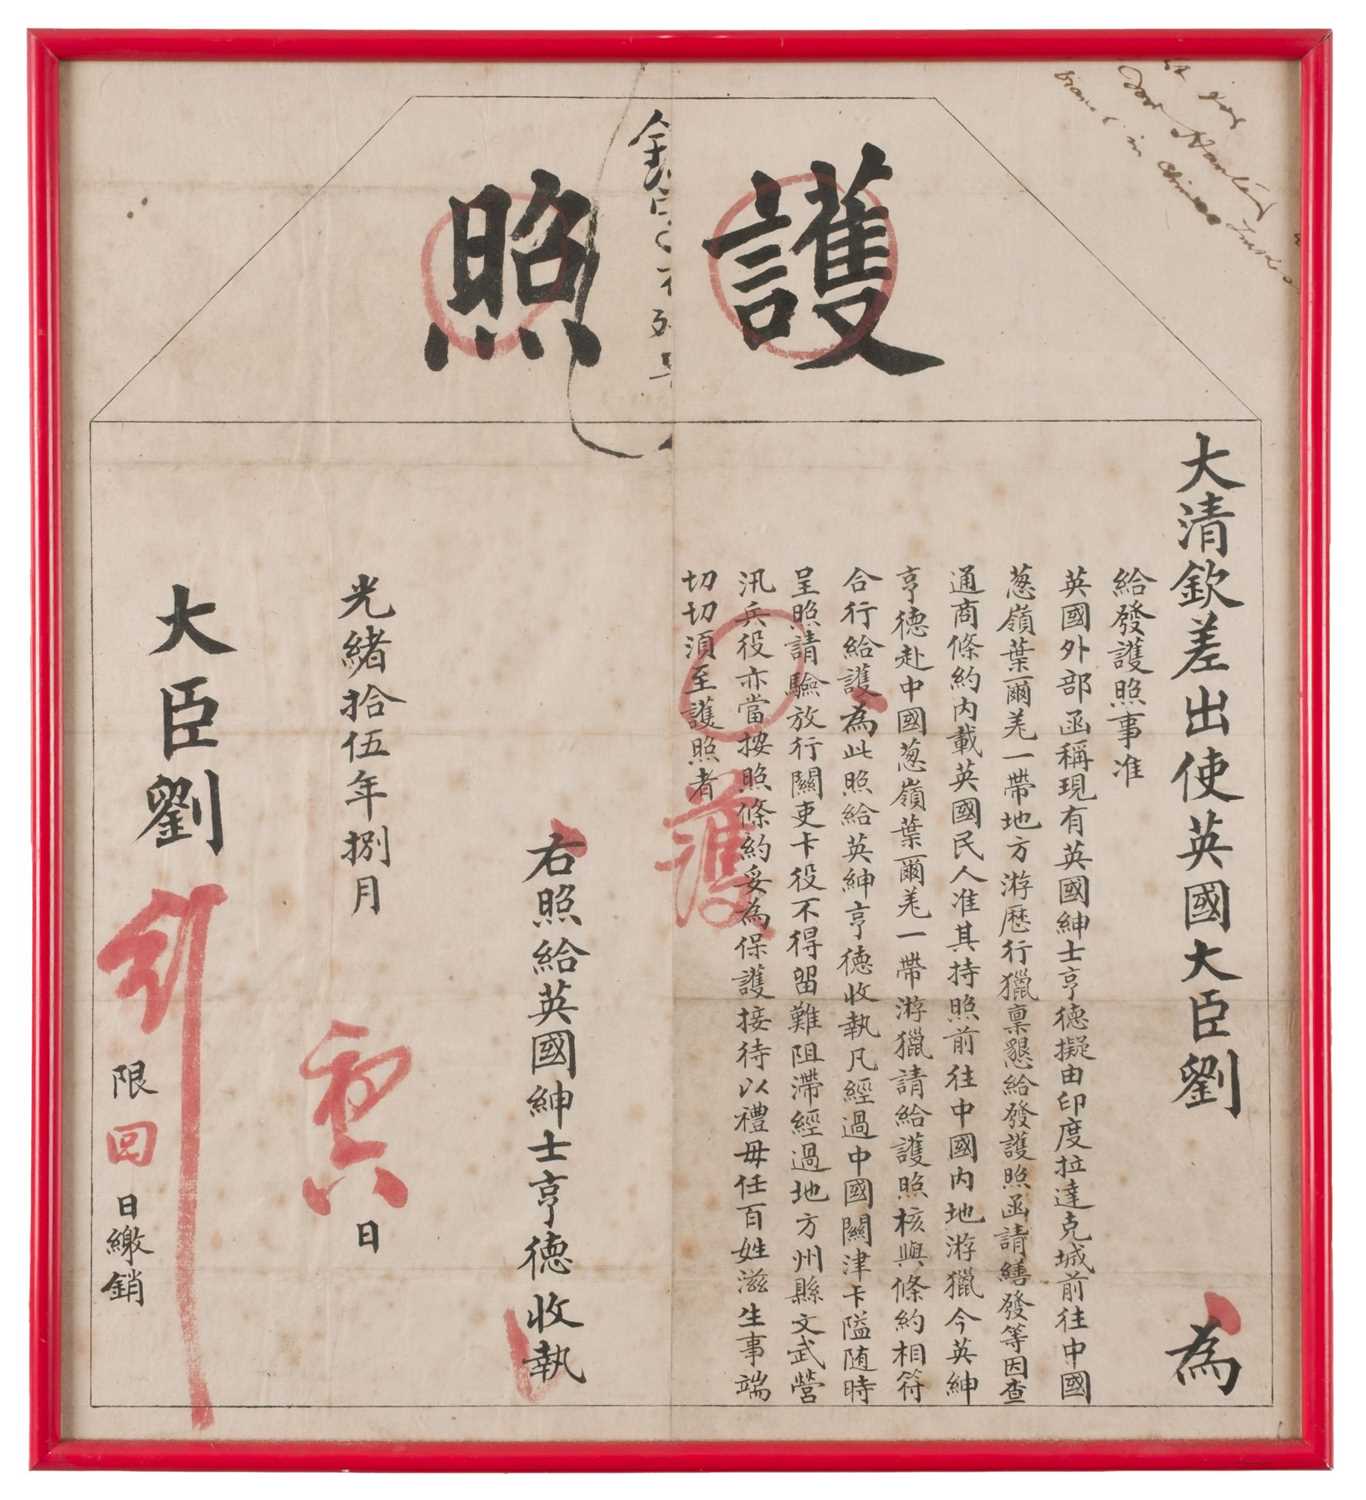 護照
大清欽差出使英國大臣劉 為
給發護照事准
英國外部函稱現有英國紳士亨德擬由印度拉達克城前往中國
蔥嶺葉爾羌一帶地方游歷行獵稟懇給發護照函請繕發等因查
通商條約內載英國民人准其持照前往中國內地游獵今英紳
亨德赴中國蔥嶺葉爾羌一帶游獵請給護照核與條約相符
合行給護為此照給英紳亨德收執凡經過中國關津卡隘隨時
呈照請驗放行關吏卡役不得留難阻滯經過地方州縣文武營
汛兵役亦當按照條約妥為保護接待以禮毋任百姓滋生事端
切切須至護照者
護
右照給英國紳士亨德收執
光緒拾伍年捌月 初六 日
大臣劉
限 回 日繳銷
for Hunting
in Chinese